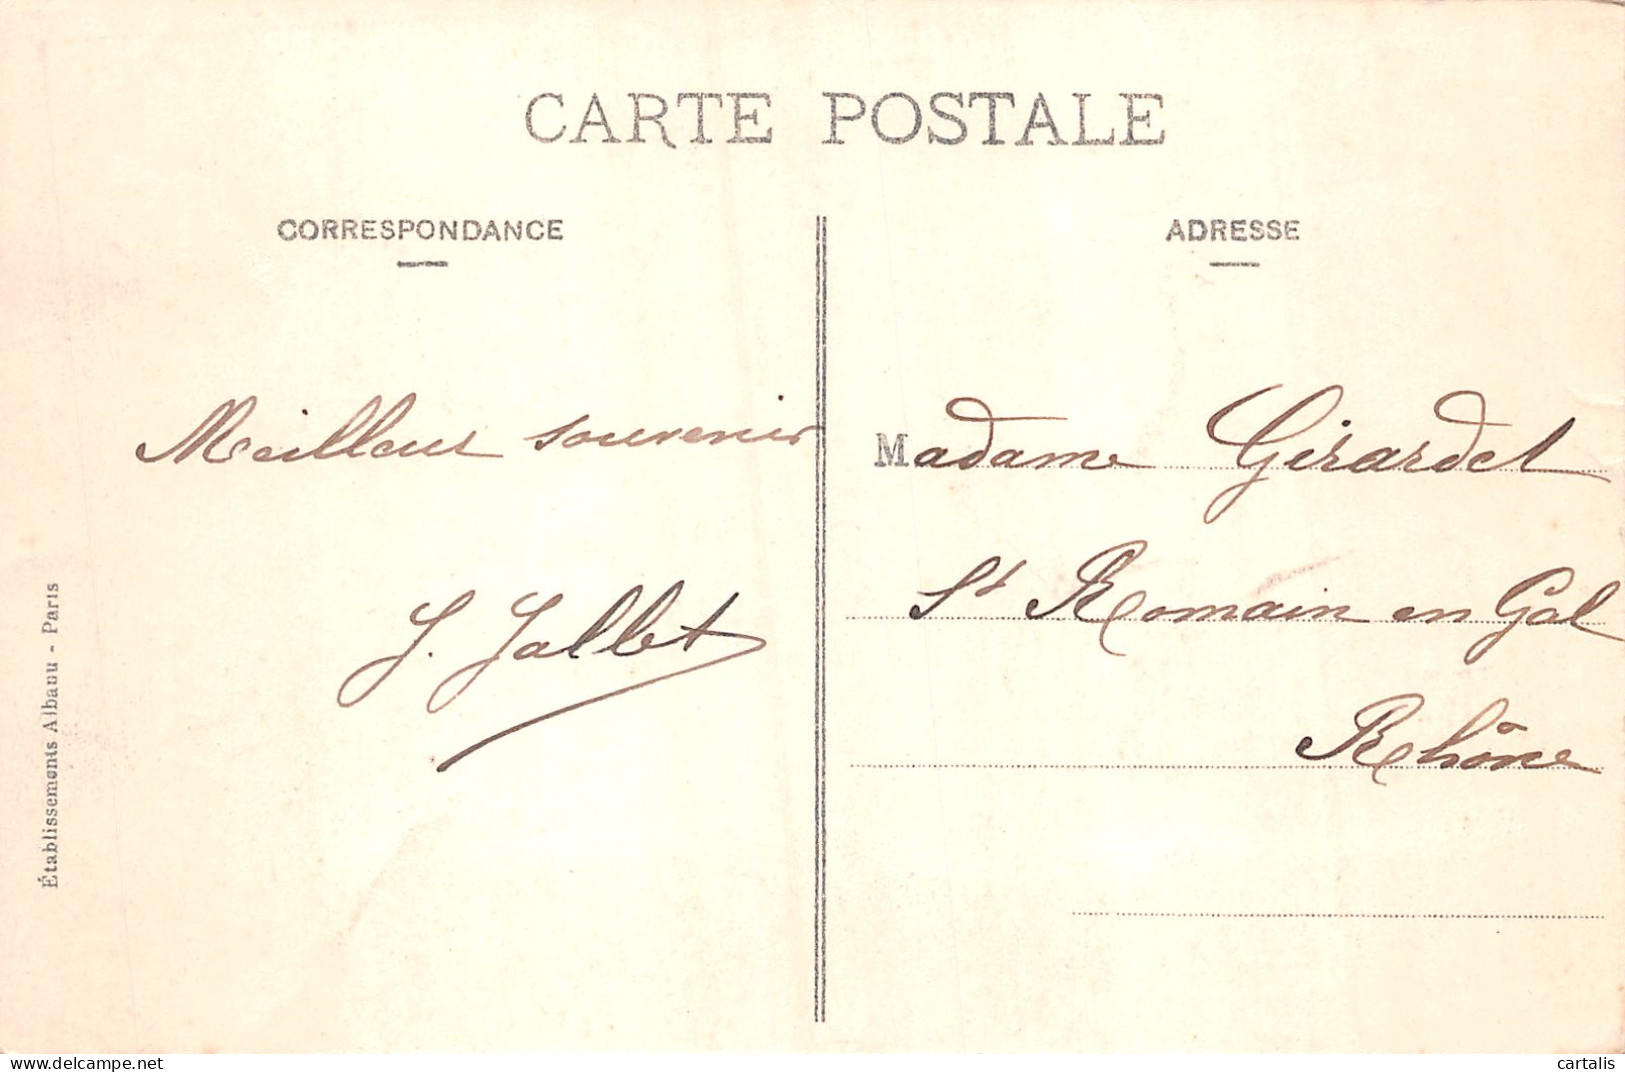 CARTE POSTALE
CORRESPONDANCE
Meilleur souvenir
J. Jallet
Établissements Albanu - Paris
ADRESSE
Madame Girardet
St Romain en Gal
Rhône
www.delcampe.net
cartalis